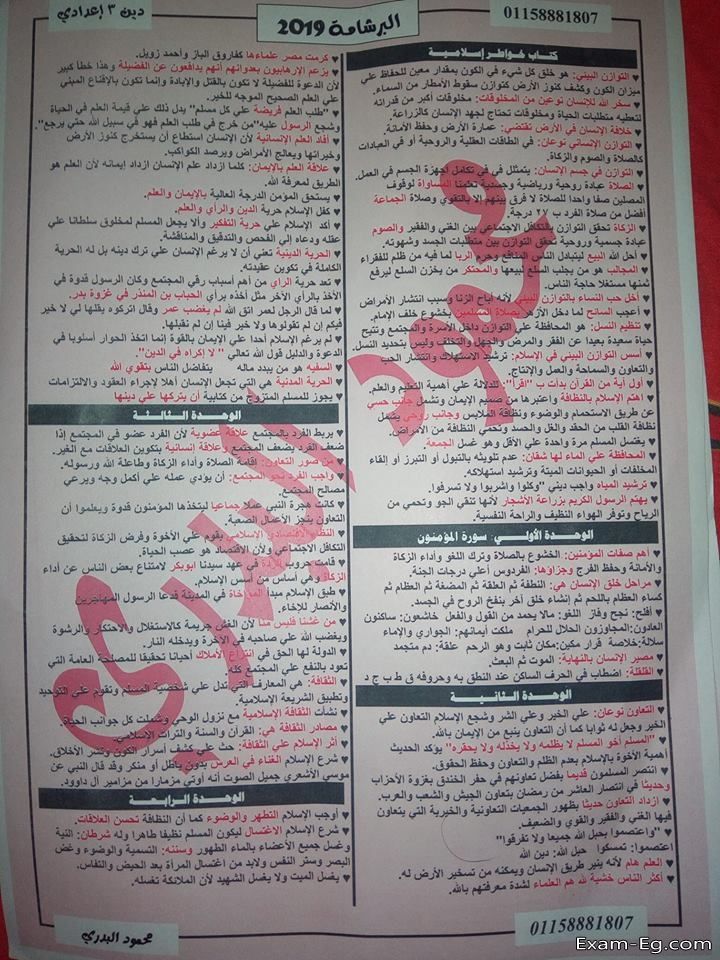 01158881807
البرشامة 2019
دين ٣ إعدادي
كتاب خواطر إسلامية
♥ التوازن البيئي: هو خلق كل شيء في الكون بمقدار معين للحفاظ علي
ميزان الكون وكشف كنوز الأرض كتوازن سقوط الأمطار من السماء.
♥ سخر الله للإنسان نوعين من المخلوقات: مخلوقات أكبر من قدراته
لتعطيه متطلبات الحياة ومخلوقات تحتاج لجهد الإنسان كالزراعة.
♥ خلافة الإنسان في الأرض تقتضي: عمارة الأرض وحفظ الأمانة.
♥ التوازن الإنساني نوعان: في الطاقات العقلية والروحية أو في العبادات
كالصلاة والصوم والزكاة.
♥ التوازن في جسم الإنسان: يتمثل في في تكامل أجهزة الجسم في العمل.
♥ الصلاة عبادة روحية ورياضية وجسدية تعلمنا المساواة لوقوف
المصلين صفا واحدا للصلاة لا فرق بينهم إلا بالتقوي وصلاة الجماعة
أفضل من صلاة الفرد ب ٢٧ درجة.
♥ الزكاة تحقق التوازن والتكافل الاجتماعي بين الغني والفقير والصوم
عبادة جسمية وروحية تحقق التوازن بين متطلبات الجسد وشهوته.
♥ أحل الله البيع ليتبادل الناس المنافع وحرم الربا لما فيه من ظلم للفقراء
♥ المجالب هو من يجلب السلع ليبيعها والمحتكر من يخزن السلع ليرفع
ثمنها مستغلا حاجة الناس.
♥ أخل حب النساء بالتوازن البيئي لأنه أباح الزنا وسبب انتشار الأمراض
♥ أعجب السائح لما دخل الأزهر بصلاة المسلمين بخشوع خلف الإمام.
♥ تنظيم النسل: هو المحافظة علي التوازن داخل الأسرة والمجتمع وتتيح
حياة سعيدة بعيدا عن الفقر والمرض والجهل والتخلف وليس بتحديد النسل.
♥ أسس التوازن البيئي في الإسلام: ترشيد الاستهلاك وانتشار الحب
والتعاون والسماحة والعمل والإنتاج.
♥ أول آية من القرآن بدأت ب "اقرأ": للدلالة علي أهمية التعليم والعلم.
♥ اهتم الإسلام بالنظافة واعتبرها من صميم الإيمان وتشمل جانب حسي
عن طريق الاستحمام والوضوء ونظافة الملابس وجانب روحي يشمل
نظافة القلب من الحقد والغل والحسد وتحمي النظافة من الأمراض.
♥ يغتسل المسلم مرة واحدة علي الأقل وهو غسل الجمعة.
♥ المحافظة علي الماء لها شقان: عدم تلويثه بالتبول أو التبرز أو إلقاء
المخلفات أو الحيوانات الميتة وترشيد استهلاكه.
♥ ترشيد المياه واجب ديني "وكلوا واشربوا ولا تسرفوا".
♥ يهتم الرسول الكريم بزراعة الأشجار لأنها تنقي الجو وتحمي من
الرياح وتوفر الهواء النظيف والراحة النفسية.
الوحدة الأولي: سورة المؤمنون
♥ أهم صفات المؤمنين: الخشوع بالصلاة وترك اللغو وأداء الزكاة
والأمانة وحفظ الفرج وجزاؤها: الفردوس أعلي درجات الجنة.
♥ مراحل خلق الإنسان هي: النطفة ثم العلقة ثم المضغة ثم العظام ثم
كساء العظام باللحم ثم إنشاء خلق آخر بنفخ الروح في الجسد.
♥ أفلح: نجح وفاز اللغو: مالا يحمد من القول والفعل خاشعون: ساكنون
العادون:المجاوزون الحلال للحرام ملكت أيمانهم: الجواري والإماء
سلالة:خلاصة قرار مكين:مكان ثابت وهو الرحم علقة: دم متجمد
♥ مصير الإنسان بالنهاية: الموت ثم البعث.
♥ القلقلة: اضطاب في الحرف الساكن عند النطق به وحروفه ق ط ب ج د
الوحدة الثانية
♥ التعاون نوعان: علي الخير وعلي الشر وشجع الإسلام التعاون علي
الخير وجعل له ثوابا كما أن التعاون ينبع من الإيمان بالله.
♥ "المسلم أخو المسلم لا يظلمه ولا يخذله ولا يحقره" يؤكد الحديث
أهمية الأخوة بالإسلام بعدم الظلم والتعاون وحفظ الحقوق.
♥ انتصر المسلمون قديما بفضل تعاونهم في حفر الخندق بغزوة الأحزاب
وحديثا في انتصار العاشر من رمضان بتعاون الجيش والشعب والعرب.
♥ ازداد التعاون حديثا بظهور الجمعيات التعاونية والخيرية التي يتعاون
فيها الغني والفقير والقوي والضعيف.
♥ "واعتصموا بحبل الله جميعا ولا تفرقوا"
اعتصموا: تمسكوا حبل الله: دين الله
♥ العلم هام لأنه ينير طريق الإنسان ويمكنه من تسخير الأرض له.
♥ أكثر الناس خشية لله هم العلماء لشدة معرفتهم بالله.
♥ كرمت مصر علماءها كفاروق الباز وأحمد زويل.
♥ يزعم الإرهابيون بعدوانهم أنهم يدافعون عن الفضيلة وهذا خطأ كبير
لأن الدعوة للفضيلة لا تكون بالقتل والإبادة وإنما تكون بالإقناع المبني
علي العلم الصحيح الموجه للخير.
♥ "طلب العلم فريضة علي كل مسلم" يدل ذلك علي قيمة العلم في الحياة
وشجع الرسول عليه "من خرج في طلب العلم فهو في سبيل الله حتي يرجع".
♥ أفاد العلم الإنسانية لأن الإنسان استطاع أن يستخرج كنوز الأرض
وخيراتها ويعالج الأمراض ويرصد الكواكب.
♥ علاقة العلم بالإيمان: كلما ازداد علم الإنسان ازداد إيمانه لأن العلم هو
الطريق لمعرفة الله.
♥ يستحق المؤمن الدرجة العالية بالإيمان والعلم.
♥ كفل الإسلام حرية الدين والرأي والعلم.
♥ أكد الإسلام علي حرية التفكير وألا يجعل المسلم لمخلوق سلطانا علي
عقله ودعاه إلي الفحص والتدقيق والمناقشة.
♥ الحرية الدينية تعني أن لا يرغم الإنسان علي ترك دينه بل له الحرية
الكاملة في تكوين عقيدته.
♥ تعد حرية الراي من أهم أسباب رقي المجتمع وكان الرسول قدوة في
الأخذ بالرأي الآخر مثل أخذه برأي الحباب بن المنذر في غزوة بدر.
♥ لما قال الرجل لعمر اتق الله لم يغضب عمر وقال اتركوه يقلها لي لا خير
فيكم إن لم تقولوها ولا خير فينا إن لم نقبلها.
♥ لم يرغم الإسلام أحدا علي الإيمان بالقوة إنما اتخذ الحوار أسلوبا في
الدعوة والدليل قول الله تعالي " لا إكراه في الدين".
♥ السفيه هو من يبدد ماله ♥ يتفاضل الناس بتقوي الله
♥ الحرية المدنية هي التي تجعل الإنسان أهلا لإجراء العقود والالتزامات
♥ يجوز للمسلم المتزوج من كتابية أن يتركها علي دينها
الوحدة الثالثة
♥ يربط الفرد بالمجتمع علاقة عضوية لأن الفرد عضو في المجتمع إذا
ضعف الفرد يضعف المجتمع وعلاقة إنسانية بتكوين العلاقات مع الغير.
♥ من صور التعاون: إقامة الصلاة وأداء الزكاة وطاعلة الله ورسوله.
♥ واجب الفرد نحو المجتمع: أن يؤدي عمله علي أكمل وجه ويرعي
مصالح المجتمع.
♥ كانت هجرة النبي عملا جماعيا ليتخذها المؤمنون قدوة ويعلموا أن
التعاون ينجز الأعمال الصعبة.
♥ النظم الاقتصادي الإسلامي: يقوم علي الأخوة وفرض الزكاة لتحقيق
التكافل الاجتماعي ولأن الاقتصاد هو عصب الحياة.
♥ قامت حروب الردة في عهد سيدنا أبوبكر لامتناع بعض الناس عن أداء
الزكاة وهي أساس من أسس الإسلام.
♥ طبق الإسلام مبدأ المؤاخاة في المدينة فدعا الرسول المهاجرين
والأنصار للإخاء.
♥ من غشنا فليس منا لأن الغش جريمة كالاستغلال والاحتكار والرشوة
ويغضب الله علي صاحبه في الآخرة ويدخله النار.
♥ الدولة لها الحق في انتزاع الأملاك أحيانا تحقيقا للمصلحة العامة التي
تعود بالنفع علي المجتمع كله
♥ الثقافة: هي المعارف التي تدل علي شخصية المسلم وتقوم علي التوحيد
وتطبيق الشريعة الإسلامية.
♥ نشأت الثقافة الإسلامية مع نزول الوحي وشملت كل جوانب الحياة
♥ مصادر الثقافة هي: القرآن والسنة والتراث الإسلامي.
♥ أثر الإسلام علي الثقافة: حث علي كشف أسرار الكون ونشر الأخلاق.
♥ شرع الإسلام الغناء في العرس بدون باطل أو منكر وقد قال النبي عن
موسي الأشعري جميل الصوت أنه أوتي مزمارا من مزامير آل داوود.
الوحدة الرابعة
♥ أوجب الإسلام التطهر والوضوء كما أن النظافة تحسن العلاقات.
♥ شرع الإسلام الاغتسال ليكون المسلم نظيفا طاهرا وله شرطان: النية
وغسل جميع الأعضاء بالماء الطهور وسننه: التسمية والوضوء وغض
البصر وستر النفس ولابد من اغتسال المرأة بعد الحيض والنفاس.
♥ يغسل الميت ولا يغسل الشهيد لأن الملائكة تغسله.
محمود البدري
01158881807
محمود البدري
Exam-Eg.com